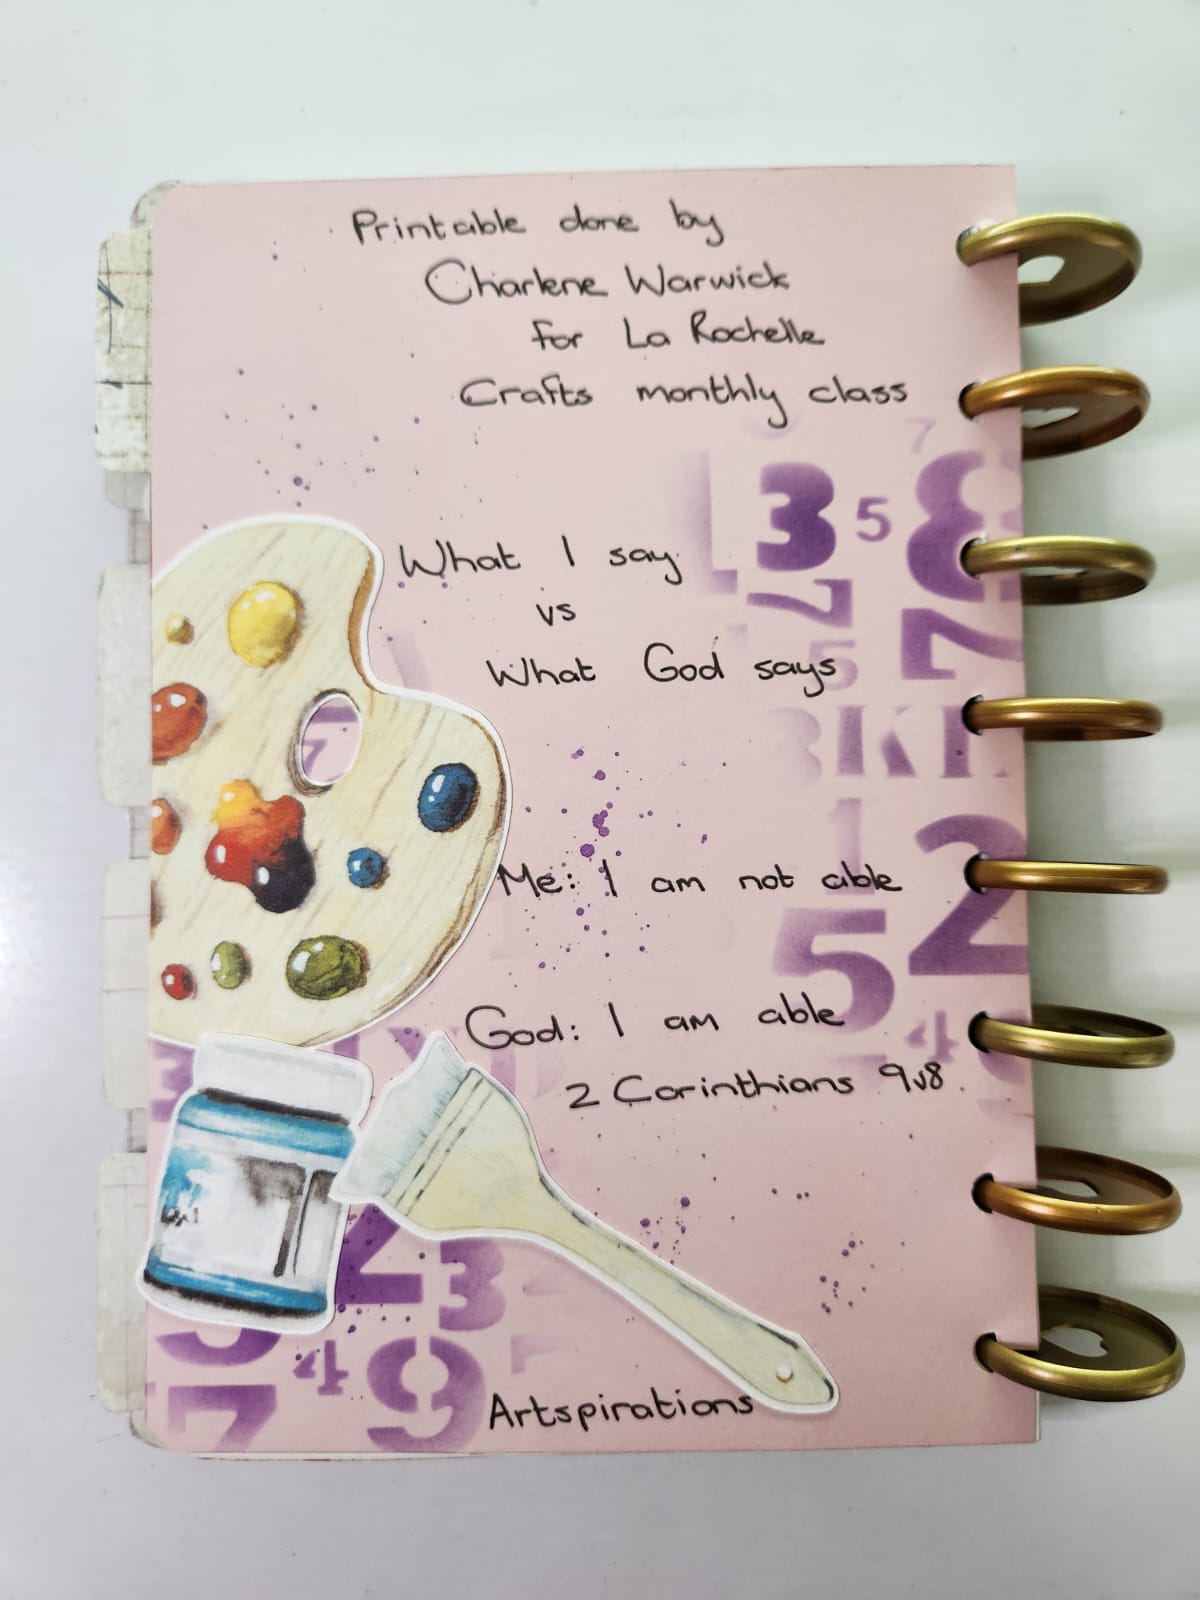 Printable done by
Charlene Warwick
for La Rochelle
Crafts monthly class
7
3 5 8
What I say
7
vs
7
What God says
5
7
3 K
1
2
Me: I am not able
5
God: I am able
4
2 Corinthians 9v8.
3
2
3
4
9
7
Artspirations